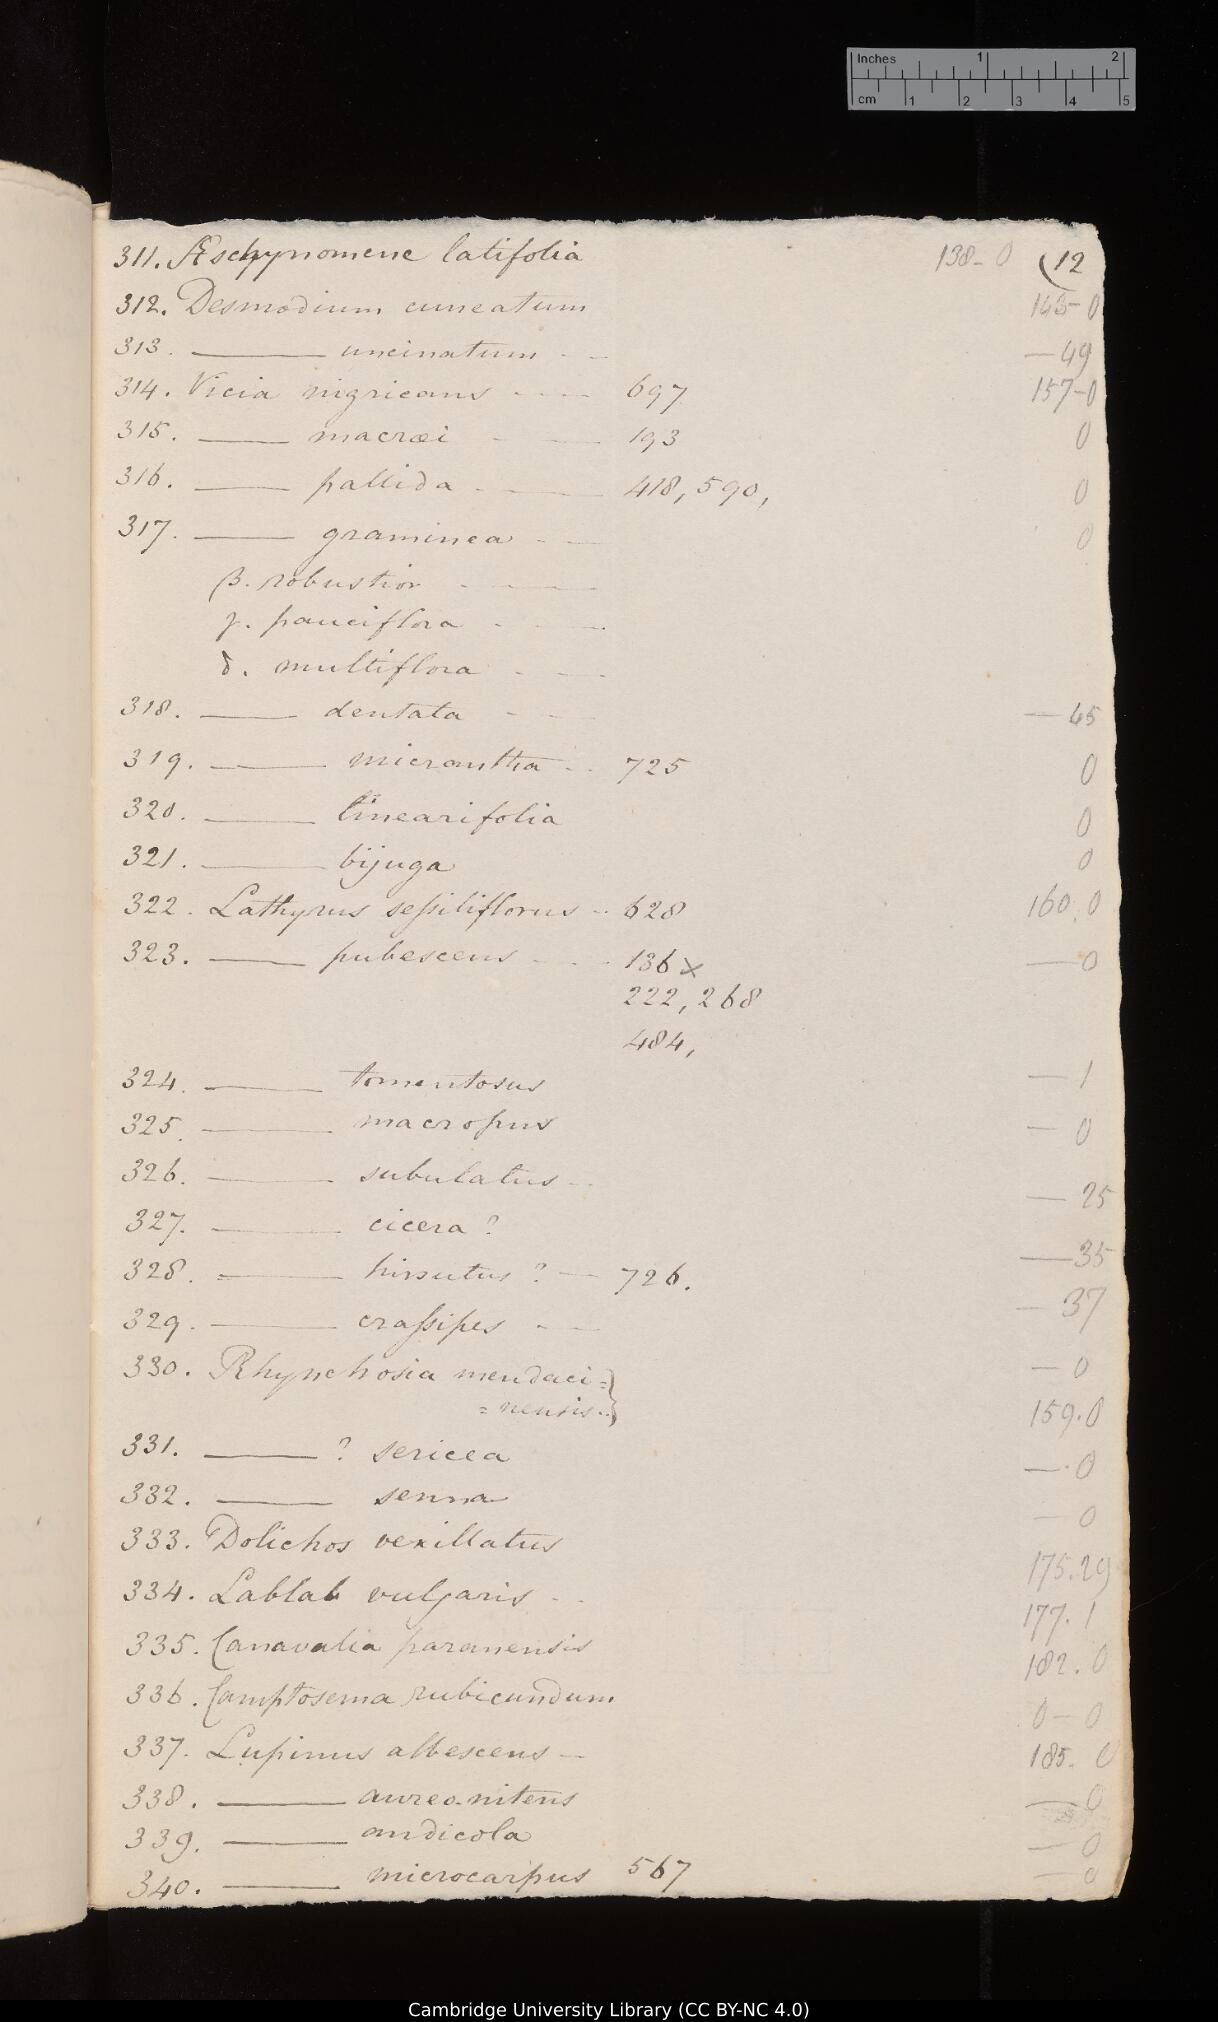 Inches 1 2
cm 1 2 3 4 5
311. Æschynomene latifolia 138-0 (12
312. Desmodium cuneatum 143-0
313. ——— uncinatum - - —49
314. Vicia nigricans - - - - 697 157-0
315. ——— macræi - — 193 0
316. ——— pallida - — 418, 590, 0
317. ——— graminea - - 0
β. robustior - —
γ. pauciflora - —
δ. multiflora - —
318. ——— dentata - - —45
319. ——— micrantha - - 725 0
320. ——— linearifolia 0
321. ——— bijuga 0
322. Lathyrus sessiliflorus - - 628 160.0
323. ——— pubescens - - - - 136 x —0
222, 268
484,
324. ——— tomentosus —1
325. ——— macropus —0
326. ——— subulatus - - —25
327. ——— cicera? —35
328. ——— hirsutus? — 726. —37
329. ——— crassipes - — —0
330. Rhynchosia mendaci=}
=nensis..} 159.0
331. ———? sericea —.0
332. ——— senna —0
333. Dolichos vexillatus 175.29
334. Lablab vulgaris - - 177.1
335. Canavalia paranensis 182.0
336. Camptosema rubicundum 0—0
337. Lupinus albescens — 185. 0
338. ——— aureo-nitens —0
339. ——— andicola —0
340. ——— microcarpus 567 —0
Cambridge University Library (CC BY-NC 4.0)